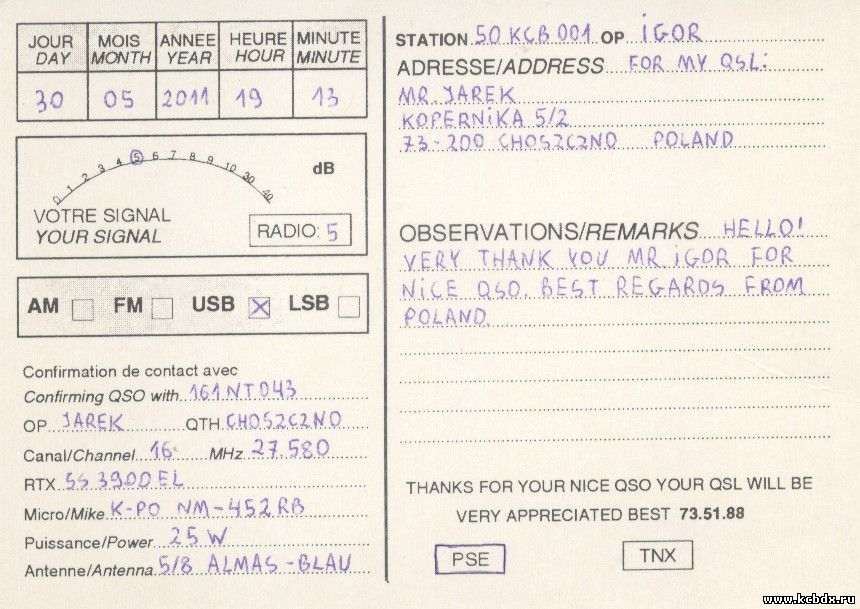 JOUR MOIS ANNEE HEURE MINUTE
DAY MONTH YEAR HOUR MINUTE
30 05 2011 19 13
0 1 2 3 4 5 6 7 8 9 10 30 40
dB
VOTRE SIGNAL
YOUR SIGNAL
RADIO: 5
AM FM USB LSB
Confirmation de contact avec
Confirming QSO with 161NT043
OP JAREK QTH CHOSZCZNO
Canal/Channel 16 MHz 27.580
RTX SS 3900 EL
Micro/Mike K-PO NM-452RB
Puissance/Power 25 W
Antenne/Antenna 5/8 ALMAS-BLAU
STATION 50 KCB 001 OP IGOR
ADRESSE/ADDRESS FOR MY QSL:
MR. JAREK
KOPERNIKA 5/2
73-200 CHOSZCZNO POLAND
OBSERVATIONS/REMARKS HELLO!
VERY THANK YOU MR IGOR FOR
NICE QSO. BEST REGARDS FROM
POLAND.
THANKS FOR YOUR NICE QSO YOUR QSL WILL BE
VERY APPRECIATED BEST 73.51.88
PSE TNX
www.kcbdx.ru